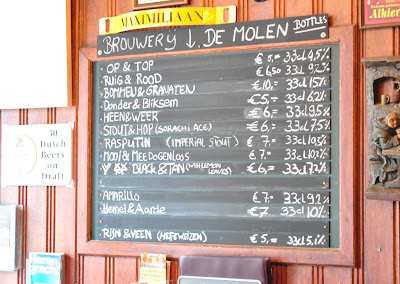 MAXIMILIAAN
BROUWERY ↓. DE MOLEN BOTTLES
OP & TOP € 5,= 33cl 4,5%
RUIG & ROOD € 6,50 33cl 9,2%
BOMMEN & GRANATEN € 10,= 33cl 15%
Donder & Bliksem € 5,= 33cl 6,2%
HEEN & WEER € 6,= 33cl 9,5%
STOUT & HOP (SORACHI ACE) € 6,= 33cl 7,5%
RASPUTIN (IMPERIAL STOUT) € 7,= 33cl 10,5%
MOOI & MEEDOGENLOOS € 7,= 33cl 10,2%
BLACK & TAN (WITH LEMON LEAVES) € 6,= 33cl 7,2%
AMARILLO € 7,= 33cl 9,2%
Hemel & Aarde € 7 33cl 10%
RIJN & VEEN (HEFEWEIZEN) € 5,= 33cl 5,1%
30
Dutch
Beers
on
Draft